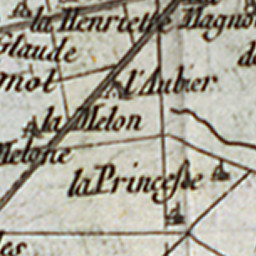 la Henriette Magno
Glaude
gnot
l'Aubier
la Melon
Melone
la Princesse
les